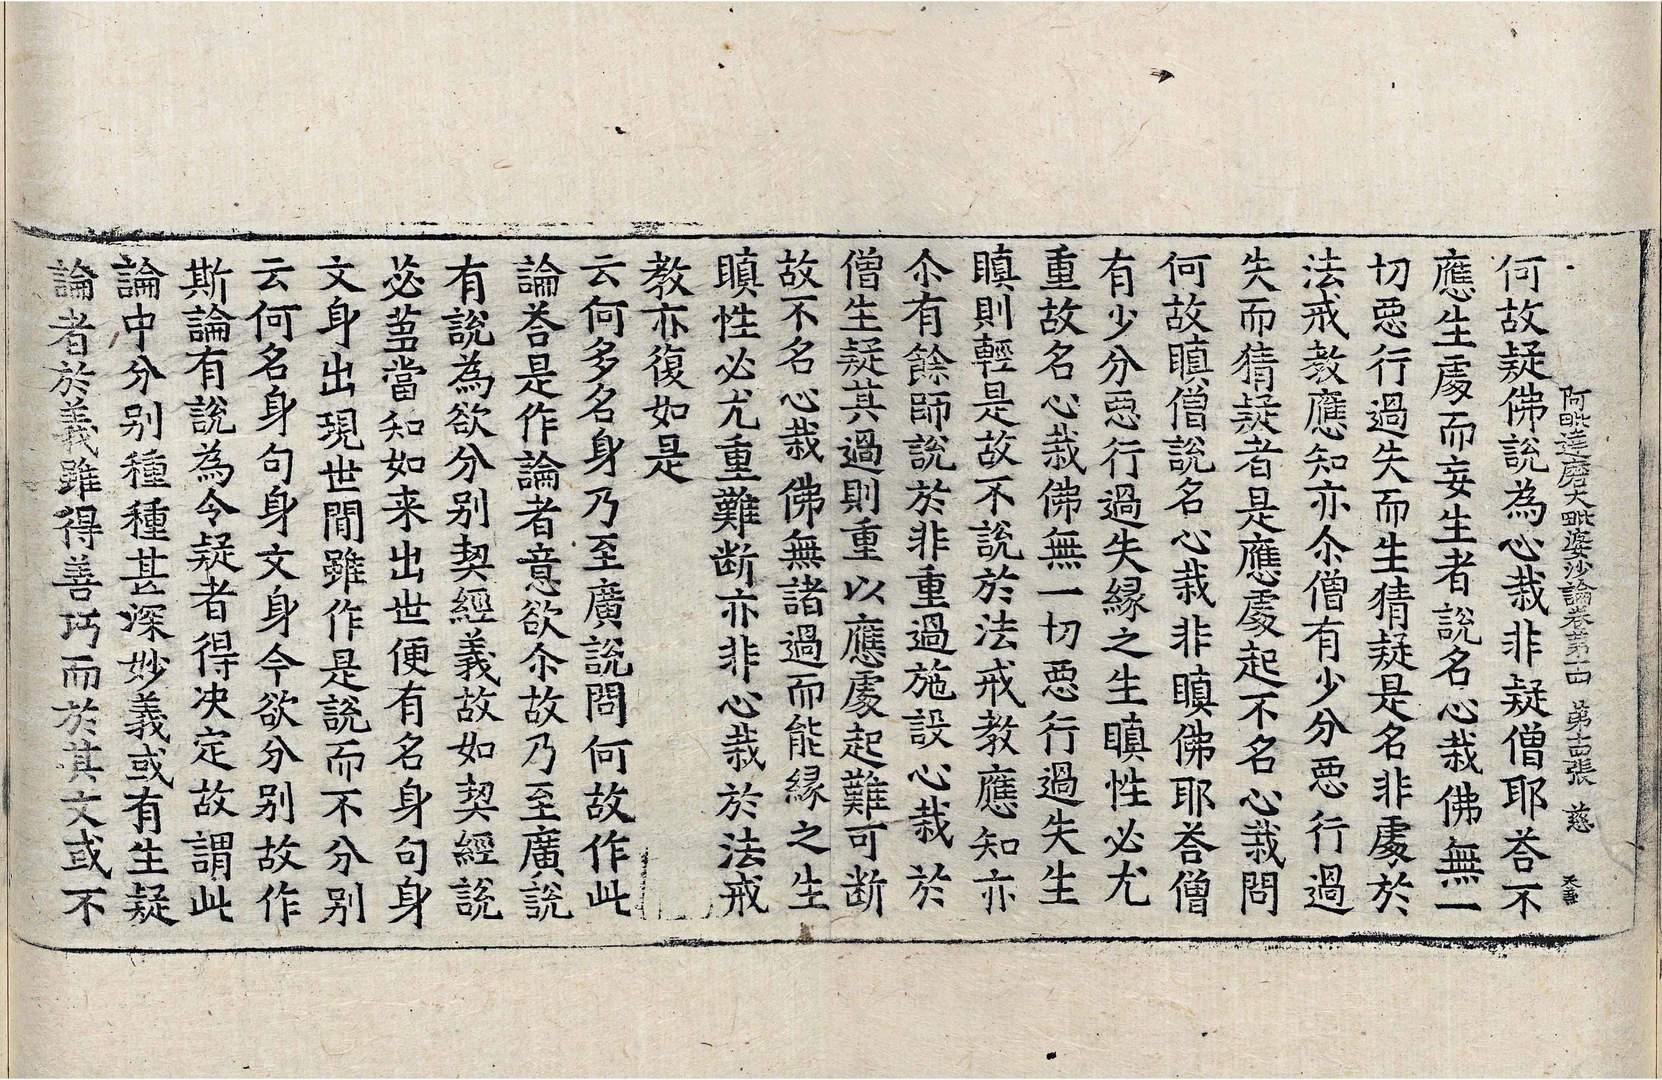 阿毗達磨大毗婆沙論卷第十四　第十五張　慈　天善
何故疑佛說為心栽非疑僧耶荅不
應生處而妄生者說名心栽佛無一
切惡行過失而生猜疑是名非處於
法戒教應知亦尒僧有少分惡行過
失而猜疑者是應處起不名心栽問
何故瞋僧說名心栽非瞋佛耶荅僧
有少分惡行過失緣之生瞋性必尤
重故名心栽佛無一切惡行過失生
瞋則輕是故不說於法戒教應知亦
尒有餘師說於非重過施設心栽於
僧生疑其過則重以應處起難可断
故不名心栽佛無諸過而能緣之生
瞋性必尤重難断亦非心栽於法戒
教亦復如是
云何多名身乃至廣說問何故作此
論荅是作論者意欲尒故乃至廣說
有說為欲分别契經義故如契經說
苾蒭當知如来出世便有名身句身
文身出現世間雖作是說而不分别
云何名身句身文身今欲分别故作
斯論有說為令疑者得决定故謂此
論中分别種種甚深妙義或有生疑
論者於義雖得善巧而於其文或不